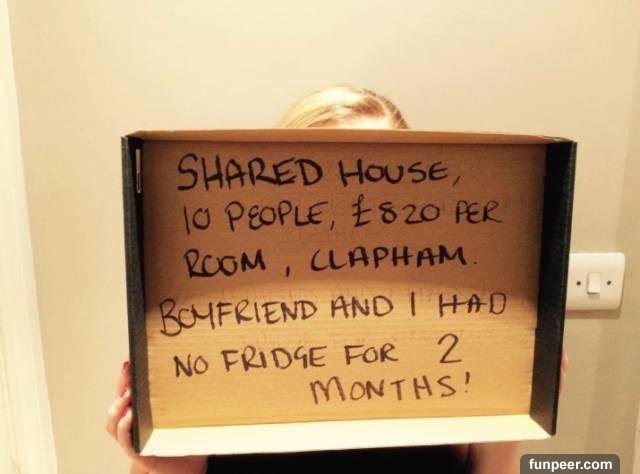 SHARED HOUSE,
10 PEOPLE, £820 PER
ROOM, CLAPHAM.
BOYFRIEND AND I HAD
NO FRIDGE FOR 2
MONTHS!
funpeer.com